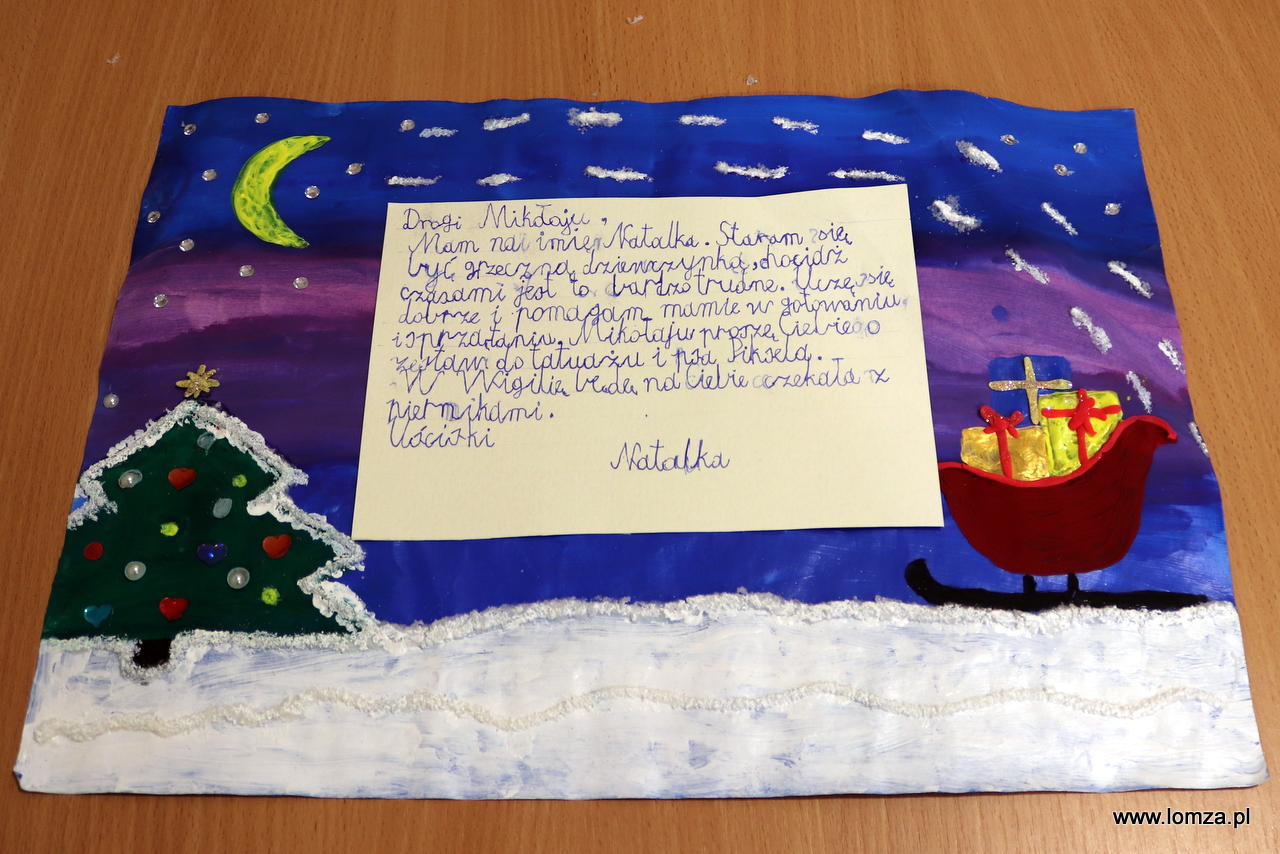 Drogi Mikołaju,
Mam na imię Natalka. Staram się
być grzeczną dziewczynką, chociaż
czasami jest to bardzo trudne. Uczę się
dobrze i pomagam mamie w gotowaniu
i sprzątaniu. Mikołaju proszę Ciebie o
zestaw do tatuażu i psa Piksela.
W Wigilię będę na Ciebie czekała z
piernikami.
Uściski
Natalka
www.lomza.pl